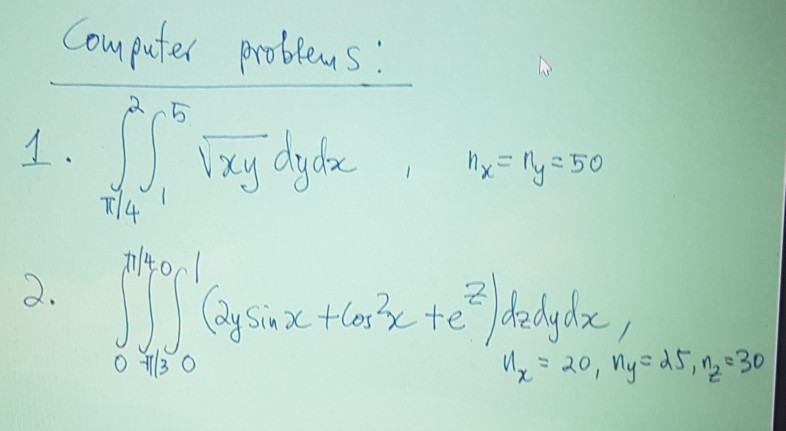 Computer problems:
1. ∫_{π/4}^{2} ∫_{1}^{5} √xy dydx , n_x = n_y = 50
2. ∫_{0}^{π/4} ∫_{π/3}^{0} ∫_{0}^{1} (2y sin x + cos²x + e^z) dzdydx ,
n_x = 20, n_y = 25, n_z = 30